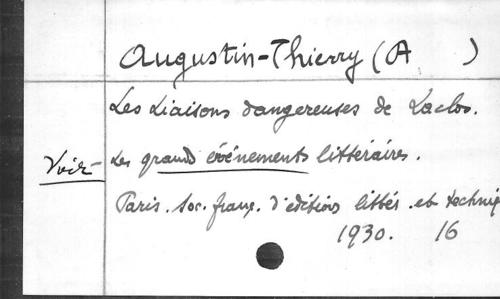 Augustin-Thierry (A )
Les Liaisons dangereuses de Laclos.
Voir Les grands événements littéraires.
Paris. Soc. franç. d'éditions littér. et techniq
1930. 16